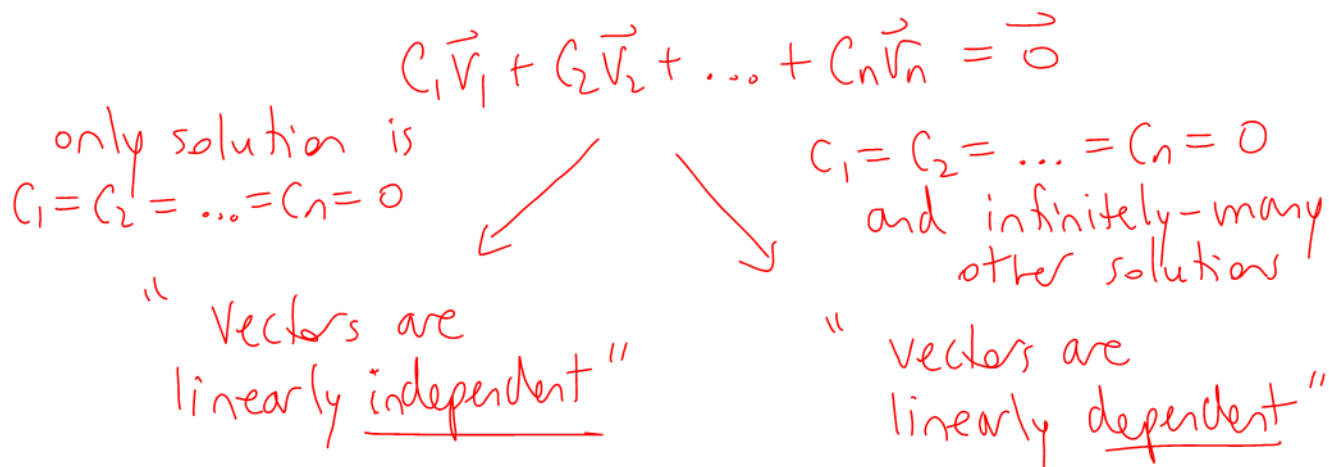 C₁v⃗₁ + C₂v⃗₂ + ... + Cₙv⃗ₙ = 0⃗
only solution is
C₁ = C₂ = ... = Cₙ = 0
"vectors are
linearly independent"
C₁ = C₂ = ... = Cₙ = 0
and infinitely-many
other solutions
"vectors are
linearly dependent"